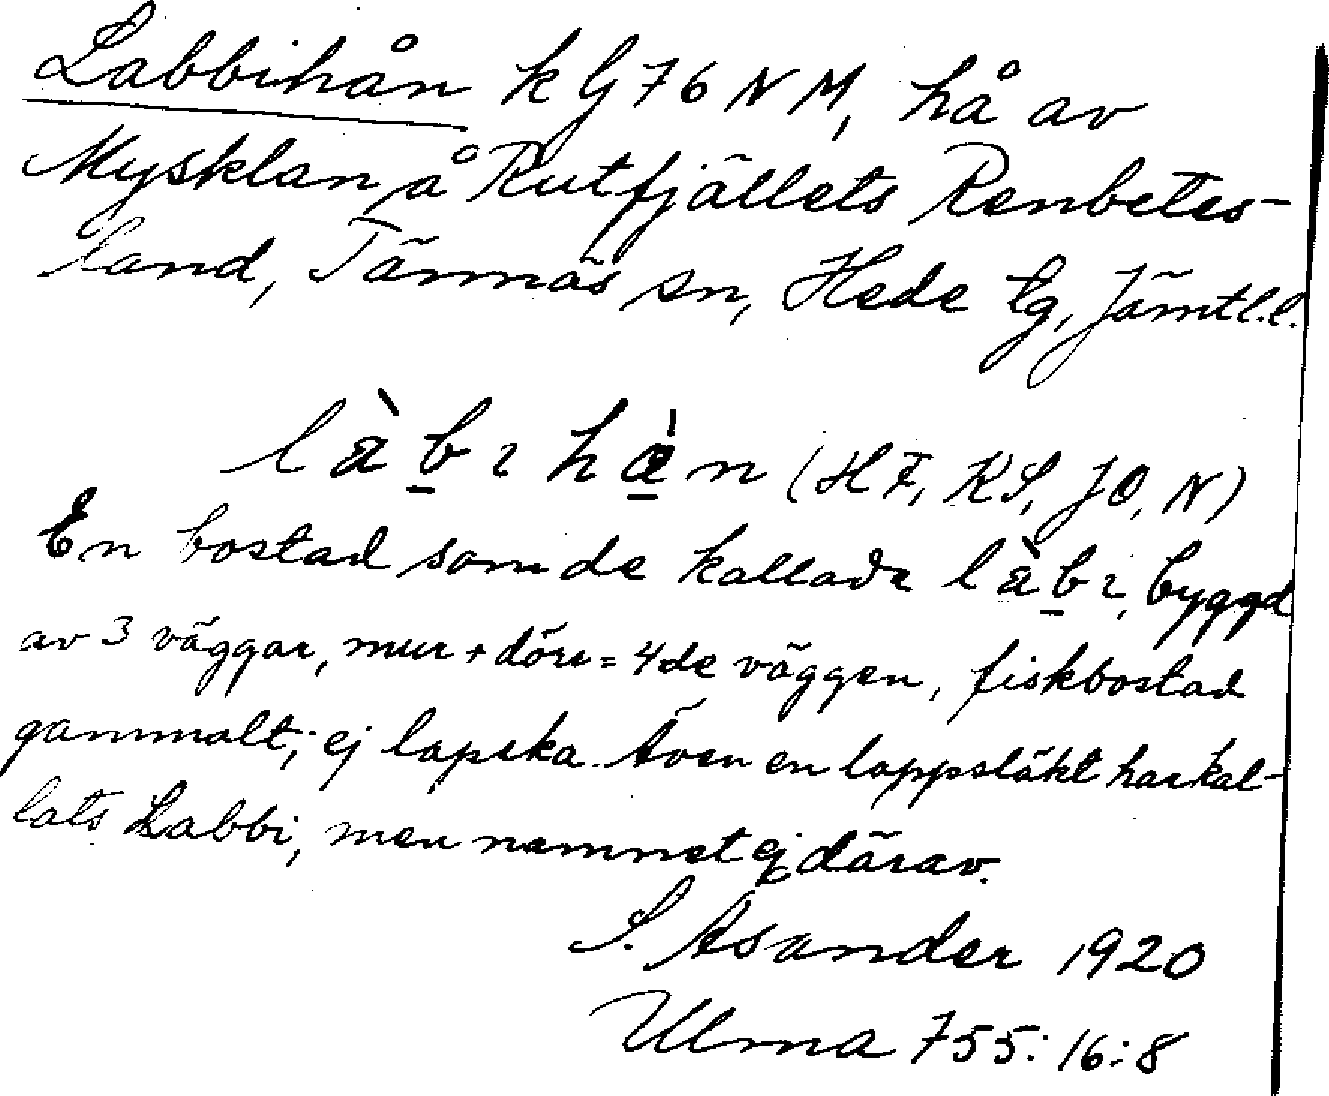 Labbihån k G 76 NM, hå av
Mysklan å Rutfjällets Renbetes-
land, Tännäs sn, Hede tg, Jämtl.l.
(HF, KS, JO, N)
En bostad som de kallade làbı, byggd
av 3 väggar, mur + dörr = 4de väggen, fiskbostad
gammalt; ej lapska. Även en lappsläkt har kal-
lats Labbi, men namnet ej därav.
S. Asander 1920
Ulma 755:16:8